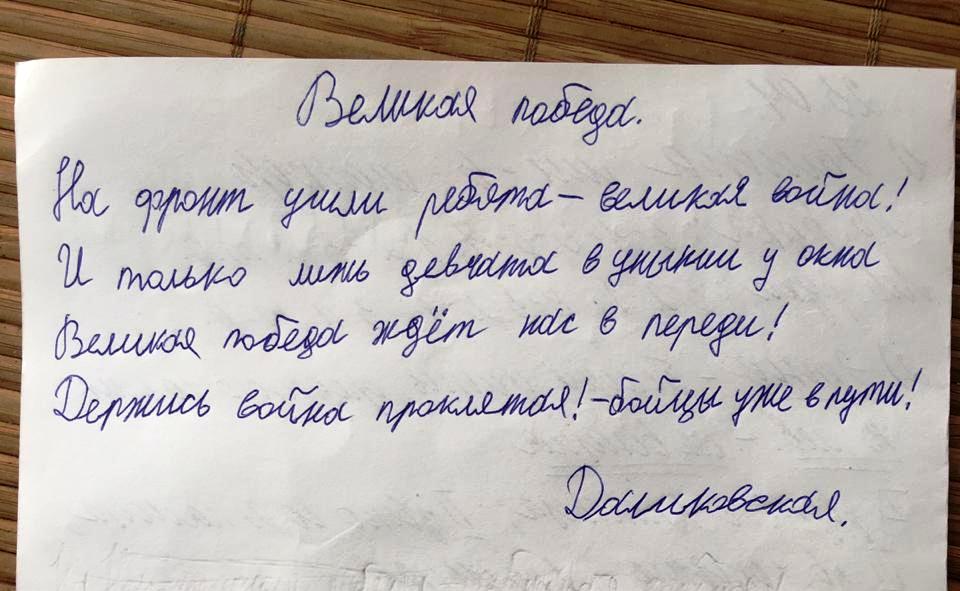 Великая победа.
На фронт ушли ребята – великая война!
И только лишь девчата в унынии у окна
Великая победа ждёт нас в переди!
Держись война проклятая! – бойцы уже в пути!
Даликовская.